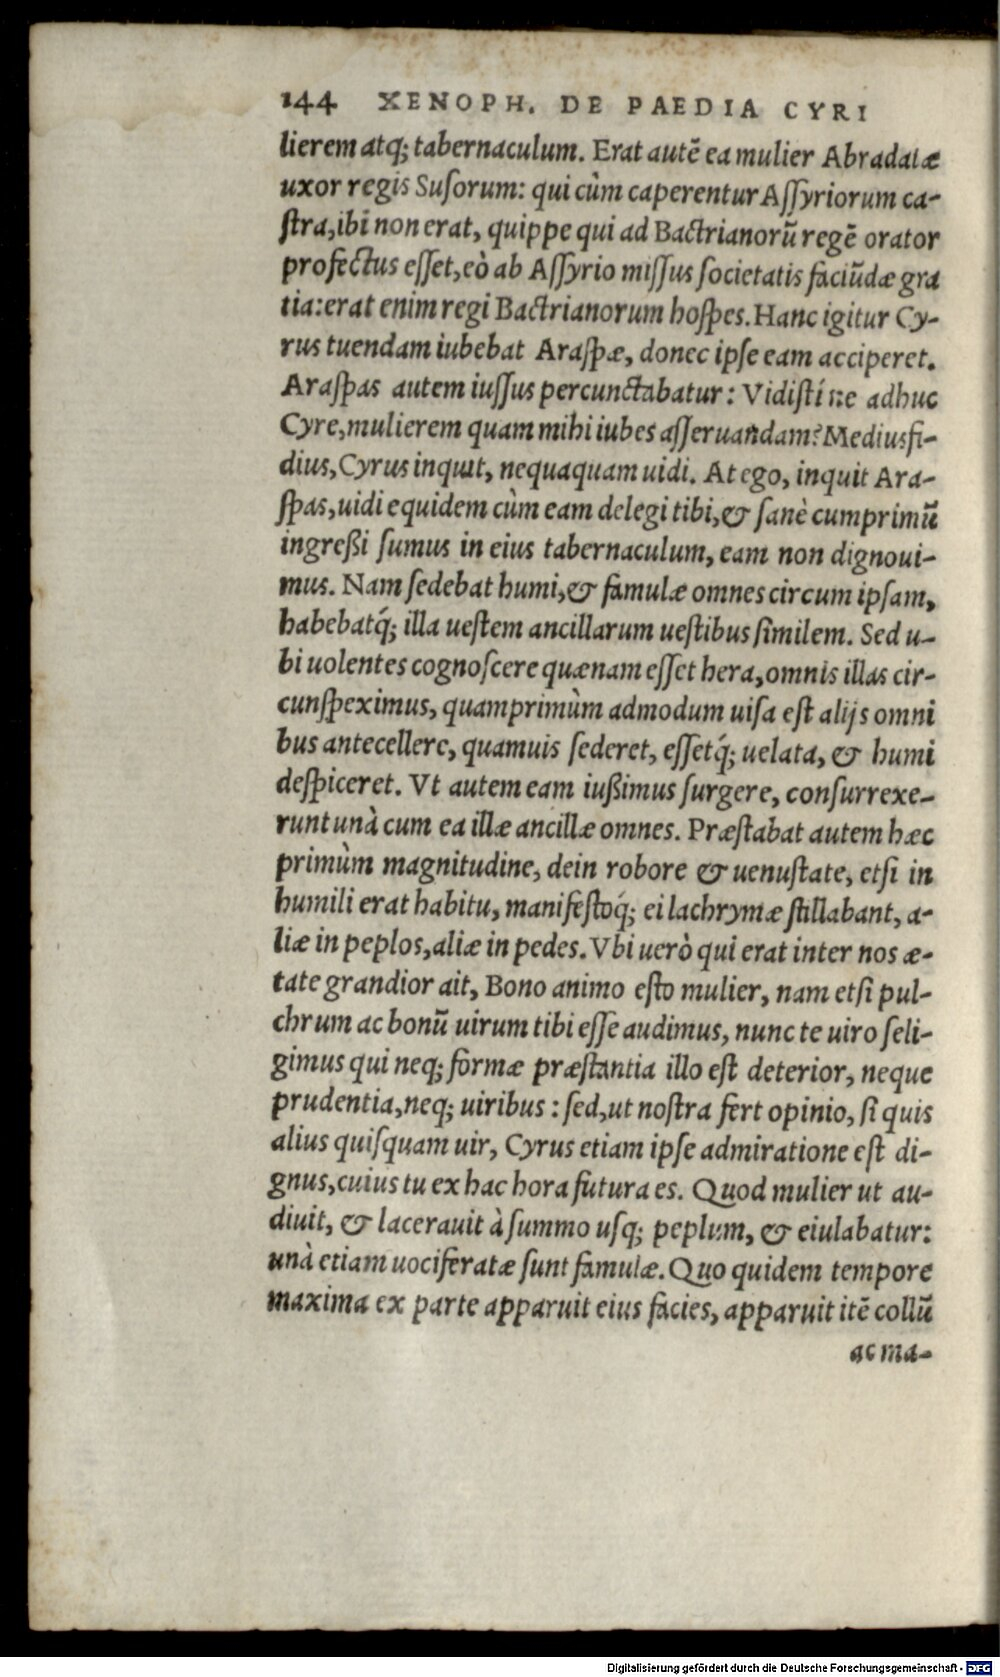 144 XENOPH. DE PAEDIA CYRI
lierem atq; tabernaculum. Erat autē ea mulier Abradatæ
uxor regis Suſorum: qui cùm caperentur Aſſyriorum ca-
ſtra, ibi non erat, quippe qui ad Bactrianorū regē orator
profectus eſſet, eò ab Aſſyrio miſſus ſocietatis faciūdæ gra
tia: erat enim regi Bactrianorum hoſpes. Hanc igitur Cy-
rus tuendam iubebat Araſpæ, donec ipſe eam acciperet.
Araſpas autem iuſſus percunctabatur: Vidiſtíne adhuc
Cyre, mulierem quam mihi iubes aſſeruandam? Mediusfi-
dius, Cyrus inquit, nequaquam uidi. At ego, inquit Ara-
ſpas, uidi equidem cùm eam delegi tibi, & ſanè cumprimū
ingreßi ſumus in eius tabernaculum, eam non dignoui-
mus. Nam ſedebat humi, & famulæ omnes circum ipſam,
habebatq́; illa ueſtem ancillarum ueſtibus ſimilem. Sed u-
bi uolentes cognoſcere quænam eſſet hera, omnis illas cir-
cunſpeximus, quamprimùm admodum uiſa eſt alijs omni
bus antecellere, quamuis ſederet, eſſetq́; uelata, & humi
deſpiceret. Vt autem eam iußimus ſurgere, conſurrexe-
runt unà cum ea illæ ancillæ omnes. Præſtabat autem hæc
primùm magnitudine, dein robore & uenuſtate, etſi in
humili erat habitu, manifeſtoq́; ei lachrymæ ſtillabant, a-
liæ in peplos, aliæ in pedes. Vbi uerò qui erat inter nos æ-
tate grandior ait, Bono animo eſto mulier, nam etſi pul-
chrum ac bonū uirum tibi eſſe audimus, nunc te uiro ſeli-
gimus qui neq; formæ præſtantia illo eſt deterior, neque
prudentia, neq; uiribus: ſed, ut noſtra fert opinio, ſi quis
alius quiſquam uir, Cyrus etiam ipſe admiratione eſt di-
gnus, cuius tu ex hac hora futura es. Quod mulier ut au-
diuit, & lacerauit à ſummo uſq; peplum, & eiulabatur:
unà etiam uociferatæ ſunt famulæ. Quo quidem tempore
maxima ex parte apparuit eius facies, apparuit itē collū
ac ma-
Digitalisierung gefördert durch die Deutsche Forschungsgemeinschaft - DFG